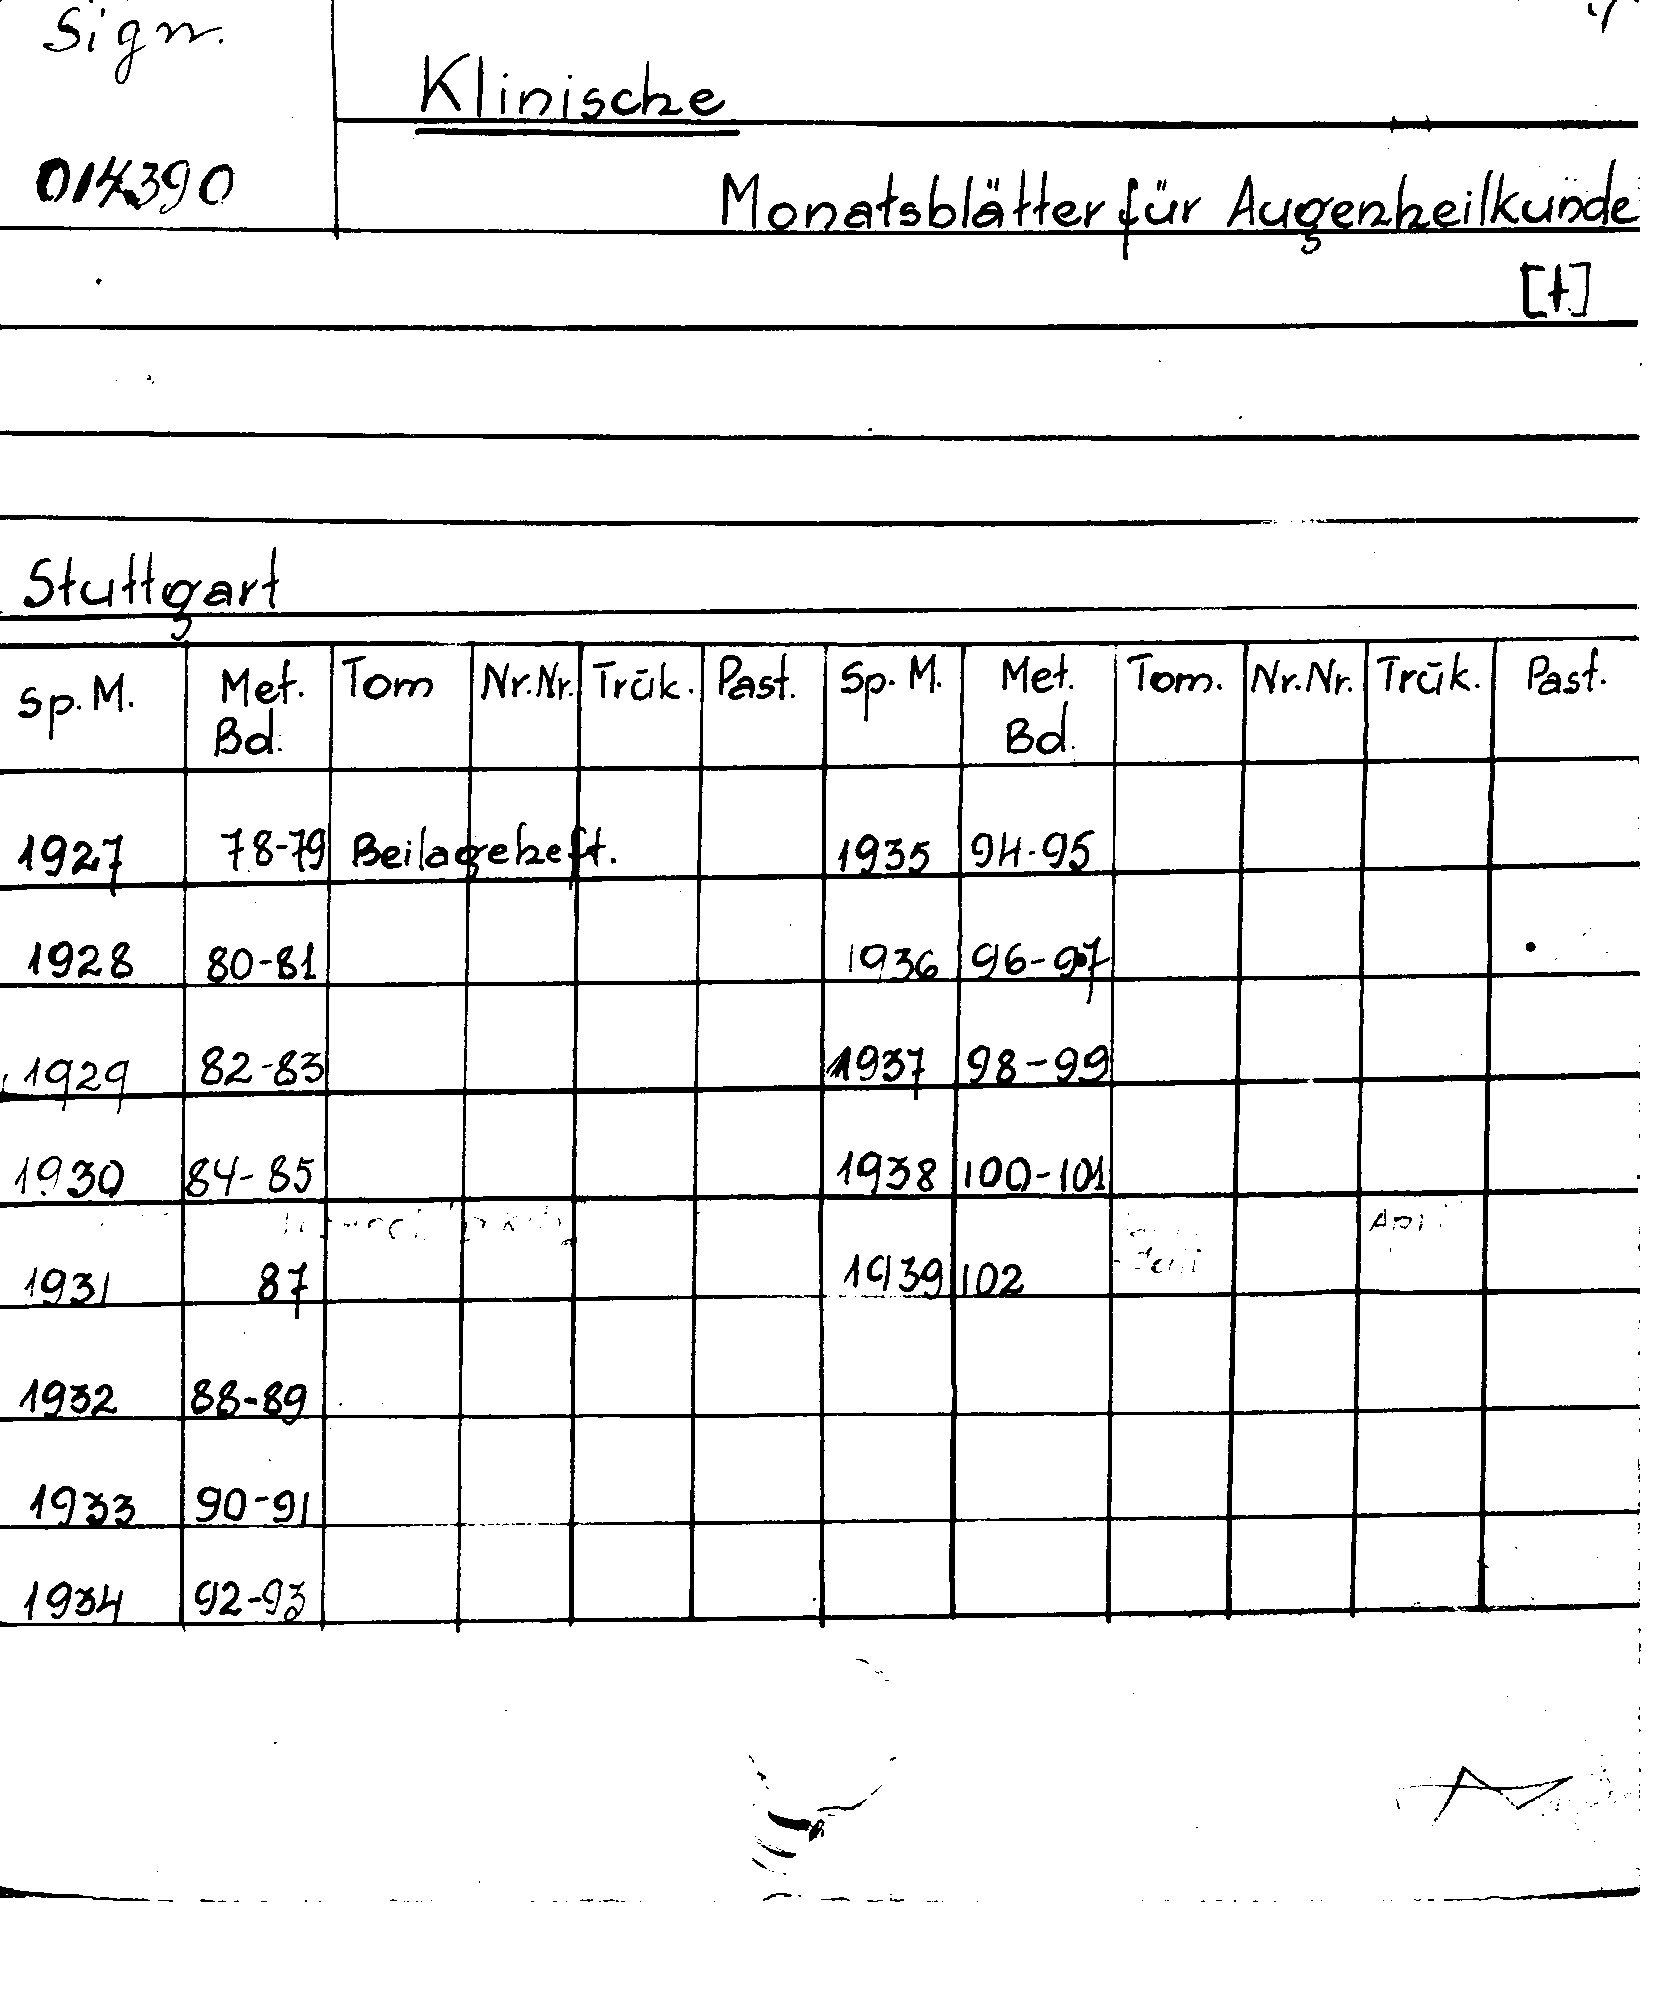 Sign.
Klinische
014390
Monatsblätter für Augenheilkunde
[1]
Stuttgart
Sp. M. Met. Bd. Tom Nr.Nr. Trūk. Past. Sp. M. Met. Bd. Tom. Nr.Nr. Trūk. Past.
1927 78-79 Beilageheft. 1935 94-95
1928 80-81 1936 96-97
1929 82-83 1937 98-99
1930 84-85 1938 100-101
1931 87 1939 102
1932 88-89
1933 90-91
1934 92-93